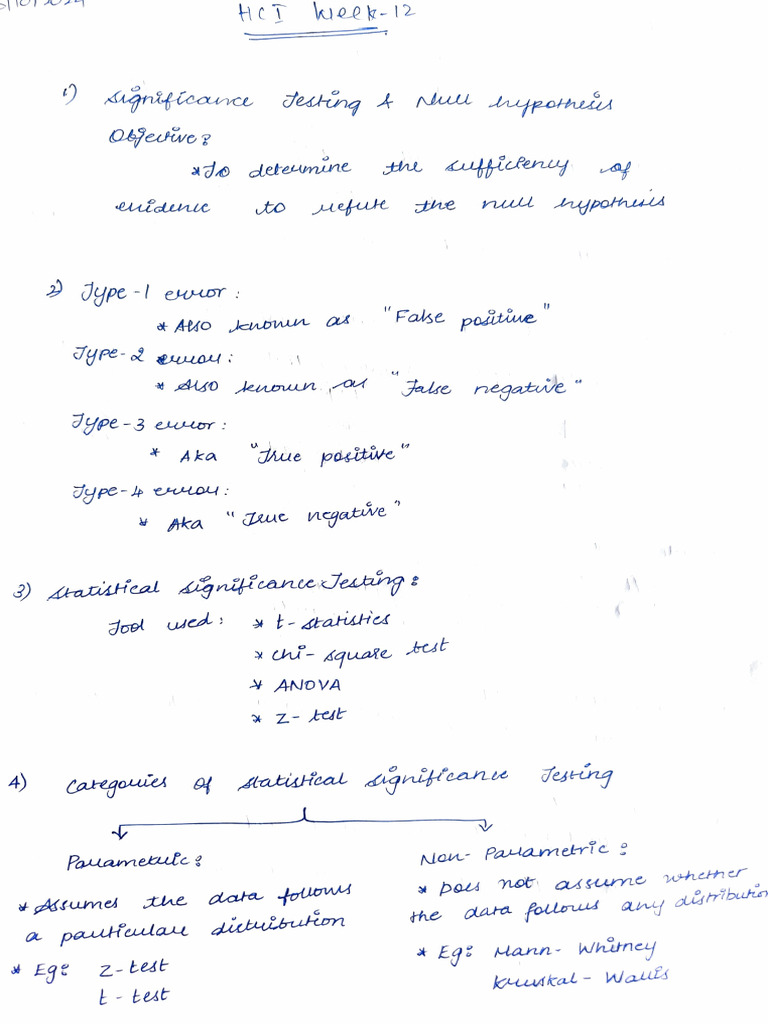 HCI Week-12
1) Significance Testing & Null hypothesis
Objective:
*To determine the sufficiency of
evidence to refute the null hypothesis
2) Type-1 error:
* Also known as "False positive"
Type-2 error:
* Also known as "False negative"
Type-3 error:
* Aka "True positive"
Type-4 error:
* Aka "True negative"
3) Statistical Significance Testing:
Tool used: * t-statistics
* chi-square test
* ANOVA
* Z-test
4) Categories of Statistical Significance Testing
Parametric:
* Assumes the data follows
a particular distribution
* Eg: Z-test
t-test
Non-Parametric:
* Does not assume whether
the data follows any distribution
* Eg: Mann-Whitney
Kruskal-Wallis